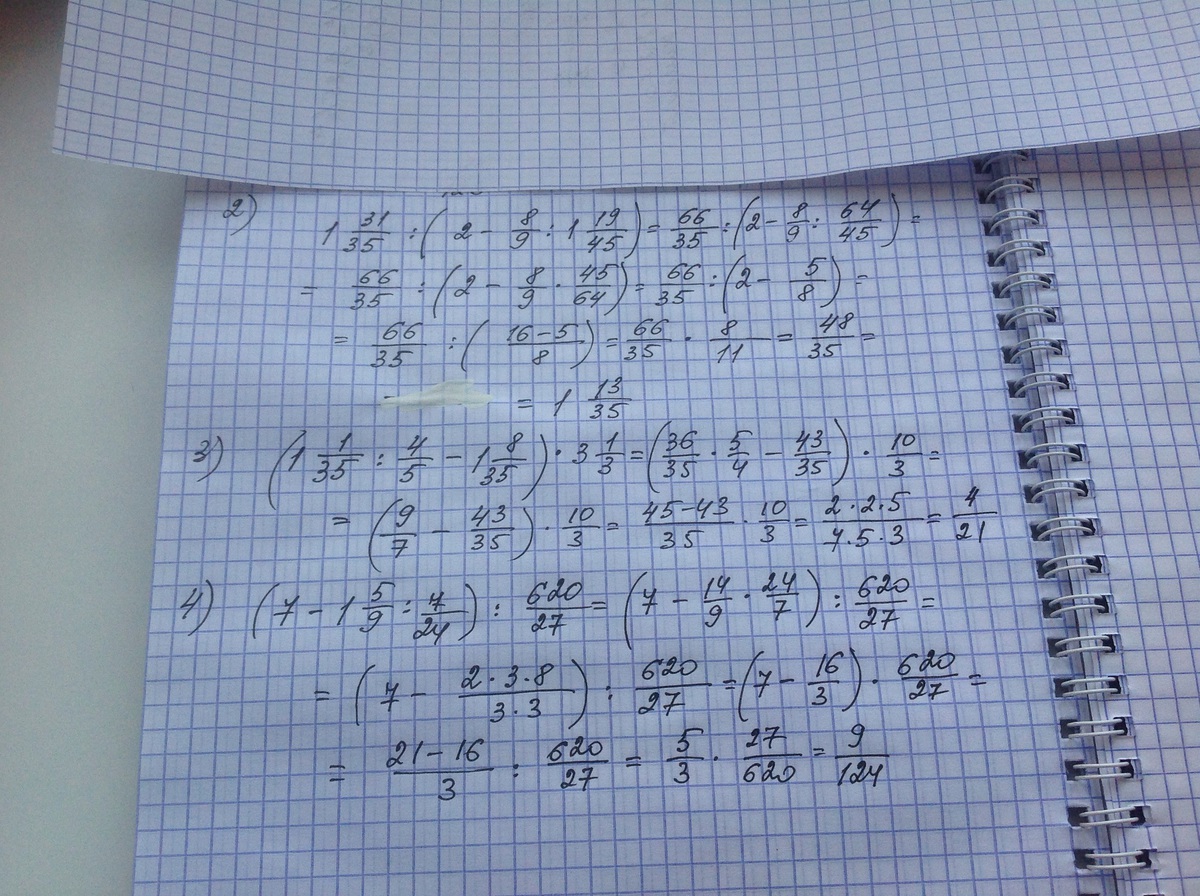 2) 1 31/35 : (2 - 8/9 : 1 19/45) = 66/35 : (2 - 8/9 : 64/45) =
= 66/35 : (2 - 8/9 · 45/64) = 66/35 : (2 - 5/8) =
= 66/35 : (16-5/8) = 66/35 · 8/11 = 48/35 =
= 1 13/35
3) (1 1/35 : 4/5 - 1 8/35) · 3 1/3 = (36/35 · 5/4 - 43/35) · 10/3 =
= (9/7 - 43/35) · 10/3 = 45-43/35 · 10/3 = 2·2·5/7·5·3 = 4/21
4) (7 - 1 5/9 : 7/24) : 620/27 = (7 - 14/9 · 24/7) : 620/27 =
= (7 - 2·3·8/3·3) : 620/27 = (7 - 16/3) · 620/27 =
= 21-16/3 : 620/27 = 5/3 · 27/620 = 9/124